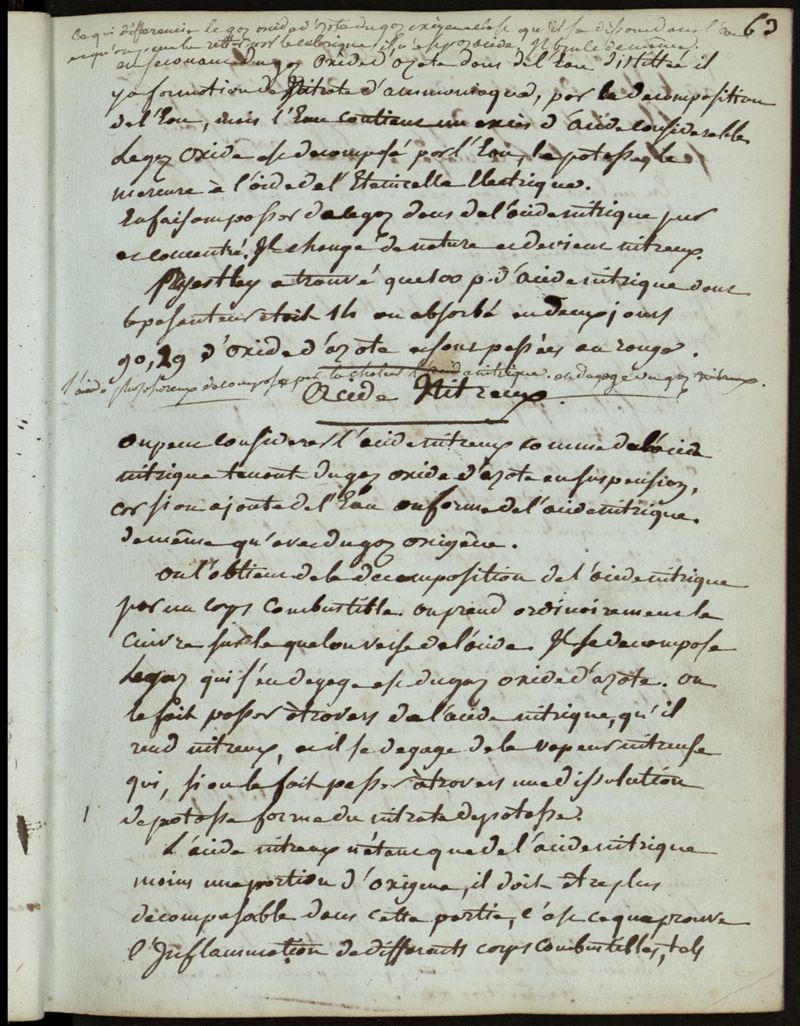 63
Ce qui differencie le gaz oxide d'azote du gaz oxigene c'est qu'il se dissout dans l'eau
et qu'on peut le retirer par le calorique, il n'est pas acide. Il brule de meme.
en secouant du gaz Oxide d'azote dans de l'Eau distillée il
ya formation de Nitrate d'ammoniaque, par la decomposition
de l'Eau, mais l'Eau contient un exces d'acide considerable
Le gaz Oxide est decomposé par l'Eau, la potasse, le
mercure à l'aide de l'Etincelle Electrique.
En faisant passer de le gaz dans de l'acide nitrique pur
et concentré. Il change de nature et devient nitreux.
Pryestley a trouvé que 100 p. d'acide nitrique dont
la pesanteur etoit 14 on absorbé en deux jours
90,29 d'oxide d'azote et sont passées au rouge.
l'acide phosphoreux decomposé par la chaleur l'acide nitrique. on degage du gaz nitreux.
Acide Nitreux.
On peut considerer l'acide nitreux comme de l'acide
nitrique tenant du gaz oxide d'azote en suspension,
car si on ajoute de l'Eau on forme de l'acide nitrique.
de même qu'avec du gaz oxigène.
On l'obtient de la decomposition de l'acide nitrique
par un corps Combustible. on prend ordinairement le
Cuivre sur le quel on verse de l'acide. Il se decompose
Le gaz qui s'en degage est du gaz oxide d'azote. on
le fait passer àtravers de l'acide nitrique, qu'il
rend nitreux, et il se degage de la vapeur nitreuse
qui, si on le fait passer àtravers une dissolution
de potasse forme du nitrate de potasse.
L'acide nitreux n'étant que de l'acide nitrique
moins une portion d'oxigene, il doit etre plus
decomposable dans cette partie, c'est ce que prouve
l'Inflammation de differents corps Combustibles, tels